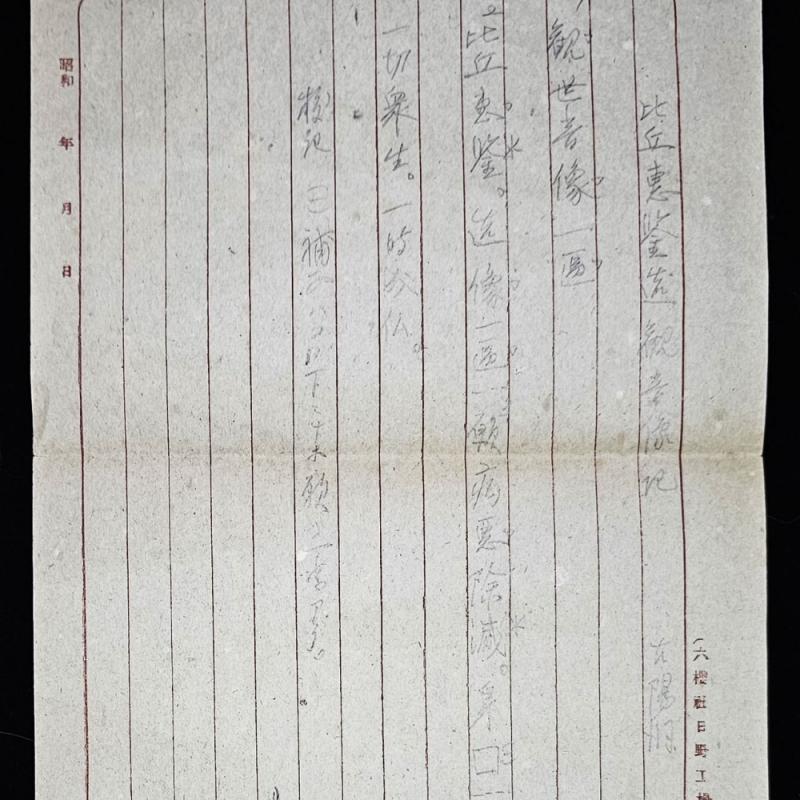 比丘惠鉴造觀音像記
古陽洞
觀世音像一區
比丘惠鉴。造像一區一願病惡除滅。
一切衆生。一時成仏。
校記
補
以下
願
昭和 年 月 日
(六櫻社日野工